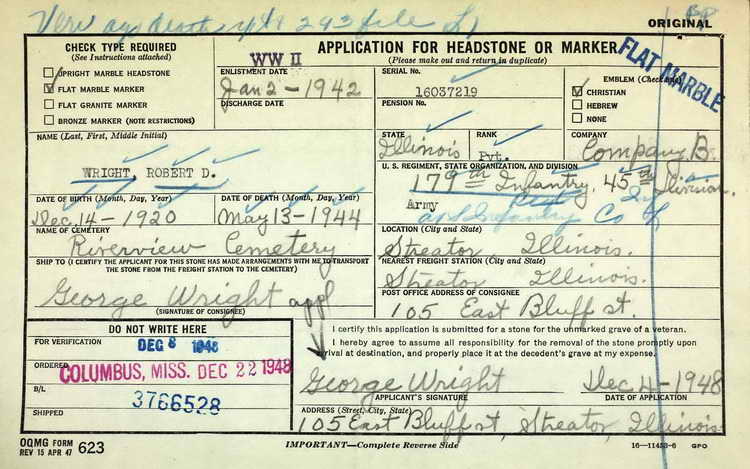 Veri ags death rpt 293 file
ORIGINAL
CHECK TYPE REQUIRED
(See Instructions attached)
UPRIGHT MARBLE HEADSTONE
FLAT MARBLE MARKER
FLAT GRANITE MARKER
BRONZE MARKER (NOTE RESTRICTIONS)
WW II
APPLICATION FOR HEADSTONE OR MARKER
(Please make out and return in duplicate)
FLAT MARBLE
ENLISTMENT DATE
Jan 2-1942
DISCHARGE DATE
SERIAL No.
16037219
PENSION No.
EMBLEM (Check one)
CHRISTIAN
HEBREW
NONE
NAME (Last, First, Middle Initial)
WRIGHT, ROBERT D.
STATE
Illinois
RANK
Pvt.
COMPANY
Company B.
U. S. REGIMENT, STATE ORGANIZATION, AND DIVISION
179th Infantry, 45th Division.
Army
DATE OF BIRTH (Month, Day, Year)
Dec. 14-1920
DATE OF DEATH (Month, Day, Year)
May 13-1944
NAME OF CEMETERY
Riverview Cemetery
LOCATION (City and State)
Streator Illinois.
SHIP TO (I CERTIFY THE APPLICANT FOR THIS STONE HAS MADE ARRANGEMENTS WITH ME TO TRANSPORT
THE STONE FROM THE FREIGHT STATION TO THE CEMETERY)
NEAREST FREIGHT STATION (City and State)
Streator Illinois.
George Wright appl
(SIGNATURE OF CONSIGNEE)
POST OFFICE ADDRESS OF CONSIGNEE
105 East Bluff st.
DO NOT WRITE HERE
FOR VERIFICATION
DEC 8 1948
ORDERED
COLUMBUS, MISS. DEC 22 1948
B/L
3766528
SHIPPED
I certify this application is submitted for a stone for the unmarked grave of a veteran.
I hereby agree to assume all responsibility for the removal of the stone promptly upon
arrival at destination, and properly place it at the decedent's grave at my expense.
George Wright Dec 4-1948
APPLICANT'S SIGNATURE DATE OF APPLICATION
ADDRESS (Street, City, State)
105 East Bluff st, Streator, Illinois
OQMG FORM
REV 15 APR 47 623
IMPORTANT—Complete Reverse Side
16—11453-6 GPO